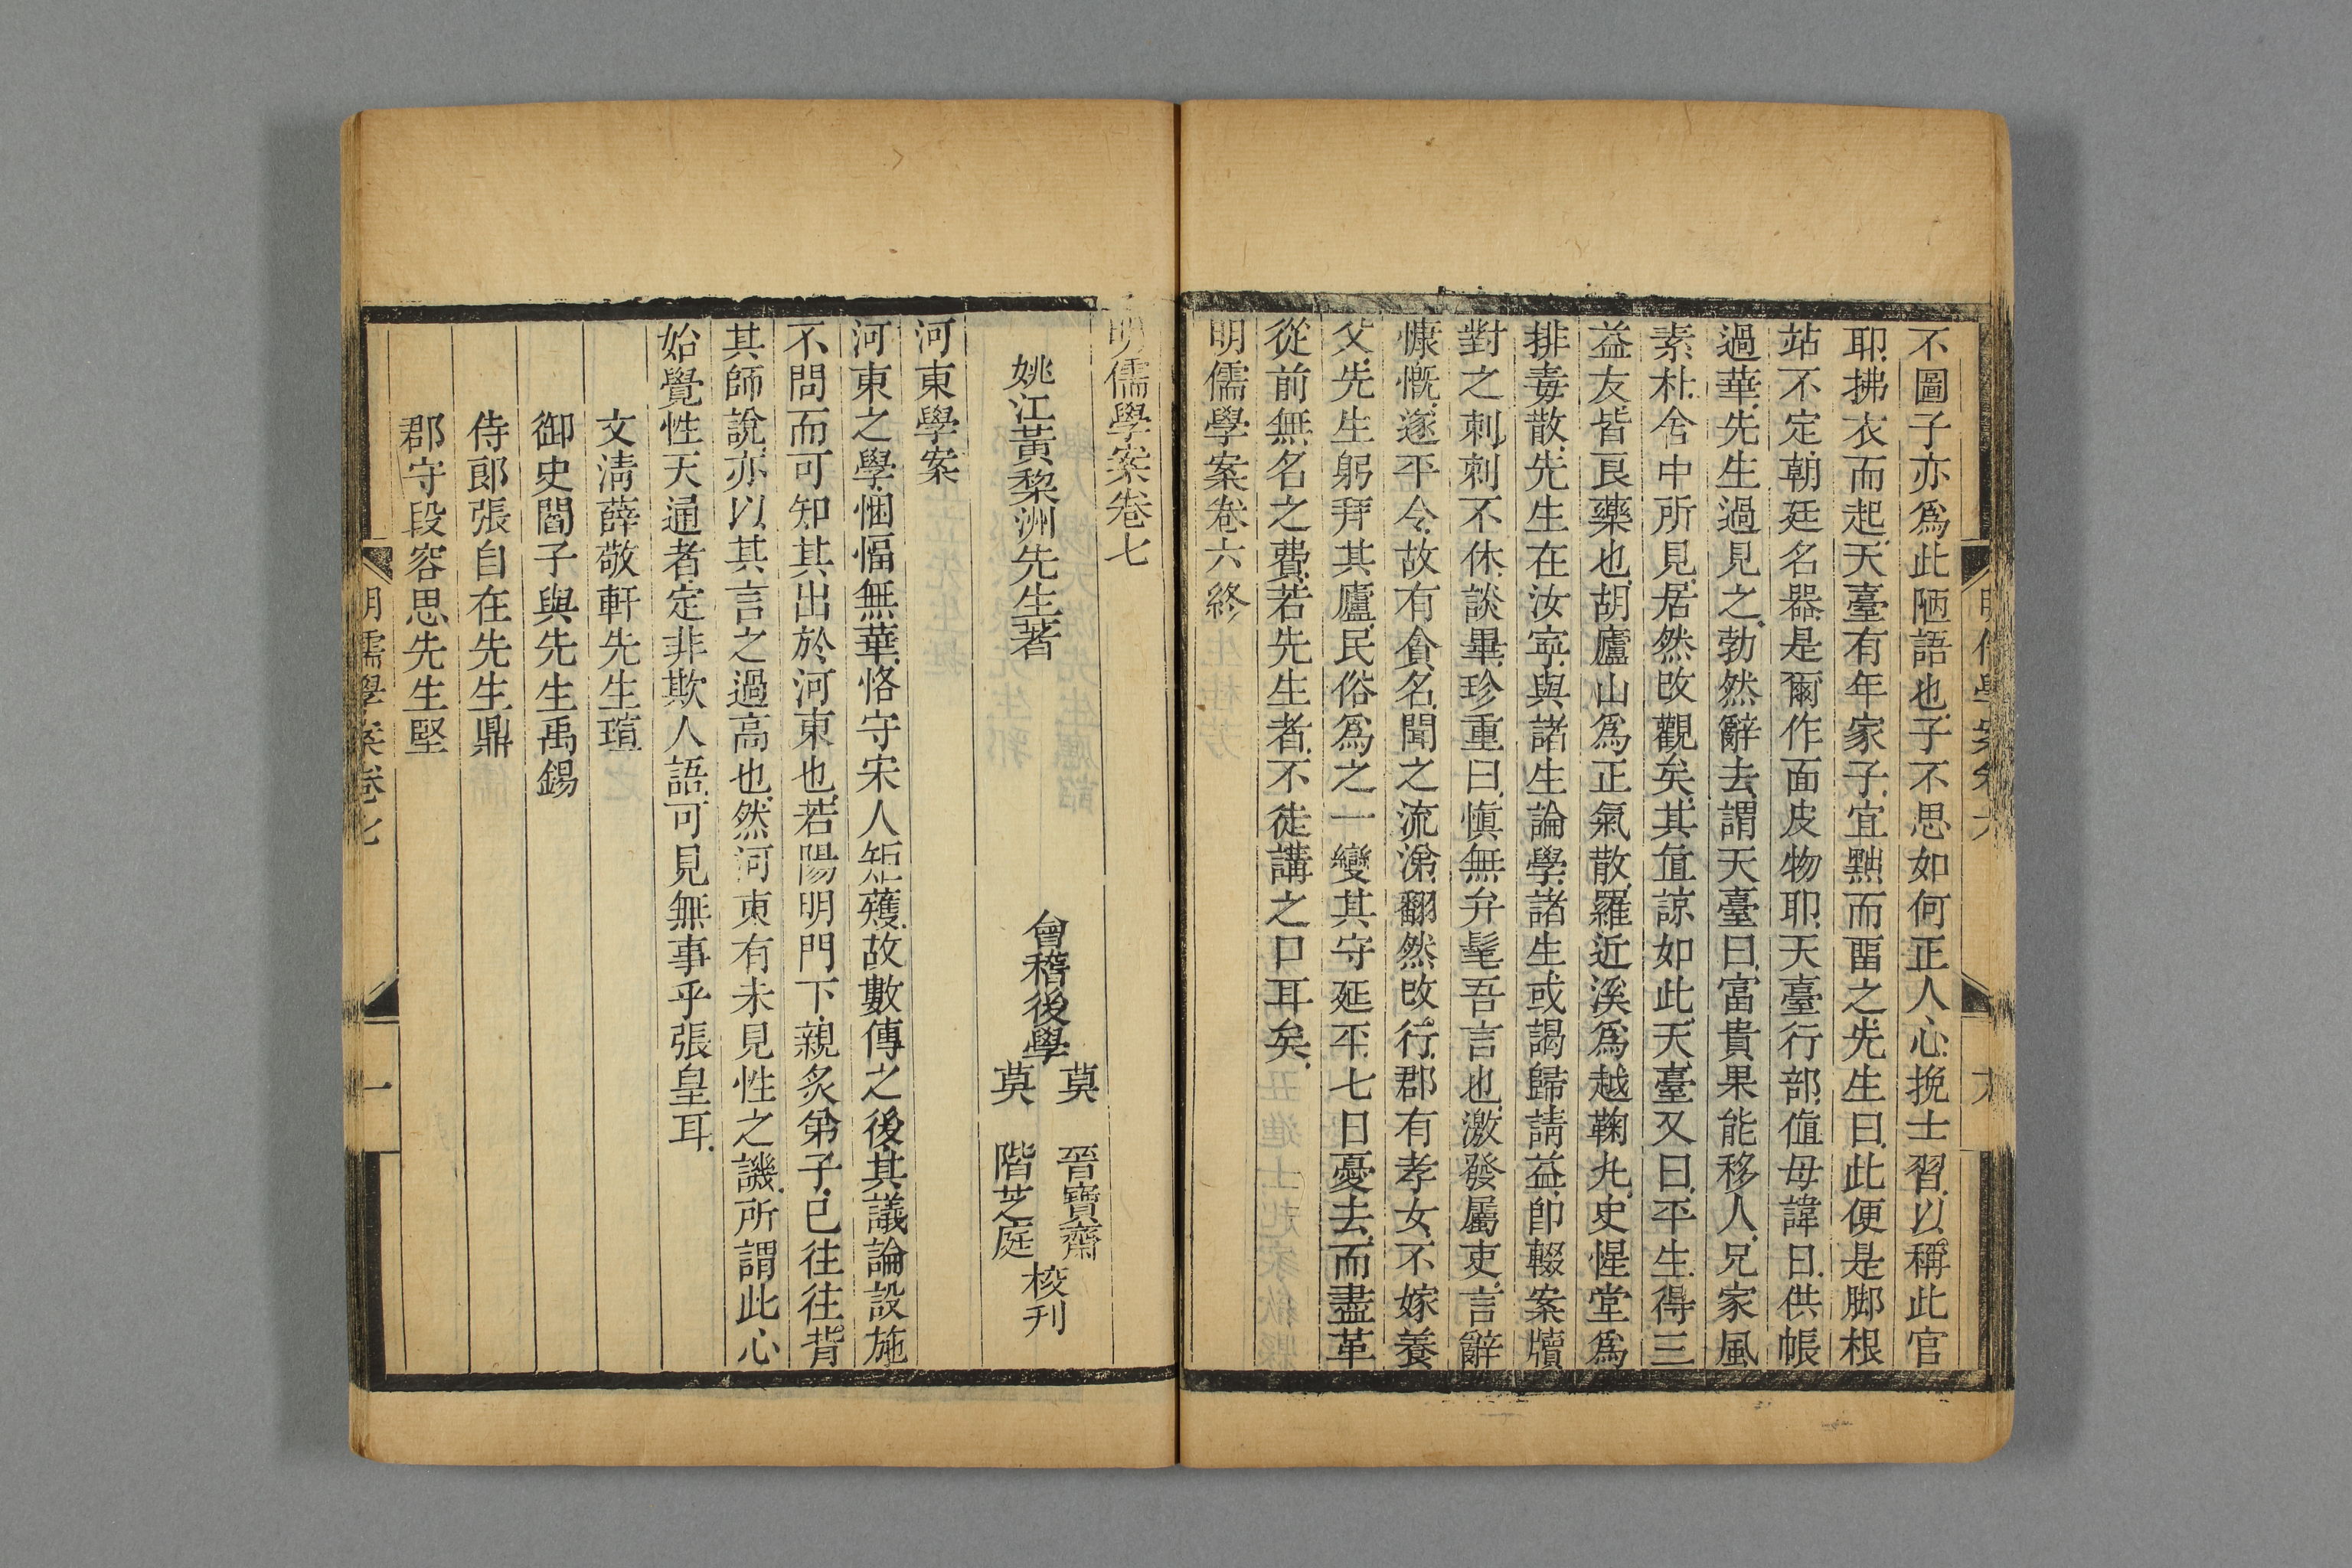 不圖子亦爲此陋語也子不思如何正人心挽士習以稱此官
耶拂衣而起天臺有年家子宜黜而畱之先生曰此便是脚根
站不定朝廷名器是爾作面皮物耶天臺行部値母諱日供帳
過華先生過見之勃然辭去謂天臺曰富貴果能移人兄家風
素朴舍中所見居然改觀矣其直諒如此天臺又曰平生得三
益友皆良藥也胡廬山爲正氣散羅近溪爲越鞠丸史惺堂爲
排毒散先生在汝寧與諸生論學諸生或謁歸請益卽輟案牘
對之刺刺不休談畢珍重曰愼無弁髦吾言也激發屬吏言辭
慷慨遂平令故有貪名聞之流涕翻然改行郡有孝女不嫁養
父先生躬拜其廬民俗爲之一變其守延平七日憂去而盡革
從前無名之費若先生者不徒講之口耳矣
明儒學案卷六終
明儒學案卷七
姚江黃棃洲先生著
會稽後學
莫 晉寶齋
莫 階芝庭
校刊
河東學案
河東之學悃愊無華恪守宋人矩矱故數傳之後其議論設施
不問而可知其出於河東也若陽明門下親炙弟子已往往背
其師說亦以其言之過高也然河東有未見性之譏所謂此心
始覺性天通者定非欺人語可見無事乎張皇耳
文淸薛敬軒先生瑄
御史閻子與先生禹錫
侍郎張自在先生鼎
郡守段容思先生堅
明儒學案卷七
一